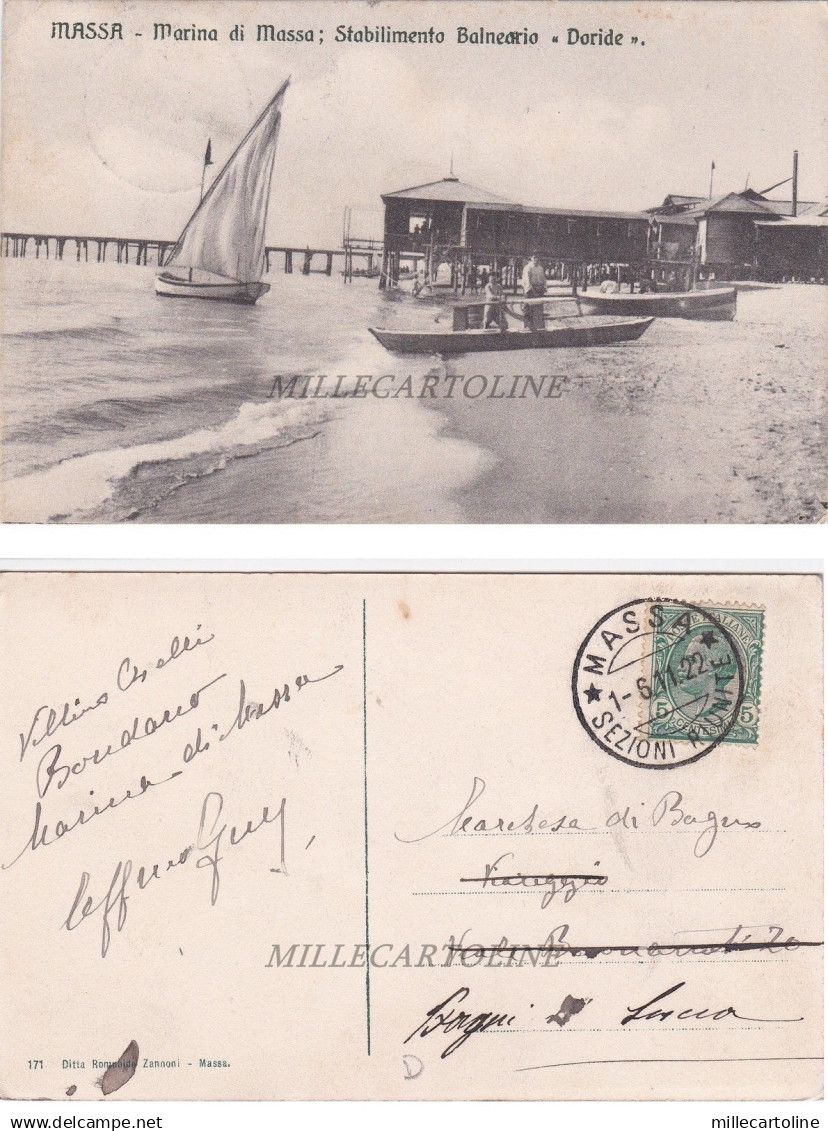 MASSA - Marina di Massa; Stabilimento Balneario « Doride ».
MILLECARTOLINE
MASSA
1-6.11.22
SEZIONI RIUNITE
POSTE ITALIANE
5 CENTESIMI 5
Villino
Bondano
Marina di Massa
Marchesa di Bagno
Viareggio
Viale Buonarroti 20
Bagni di Lucca
MILLECARTOLINE
171 Ditta Romualdo Zannoni - Massa.
D
Delcampe.net
millecartoline